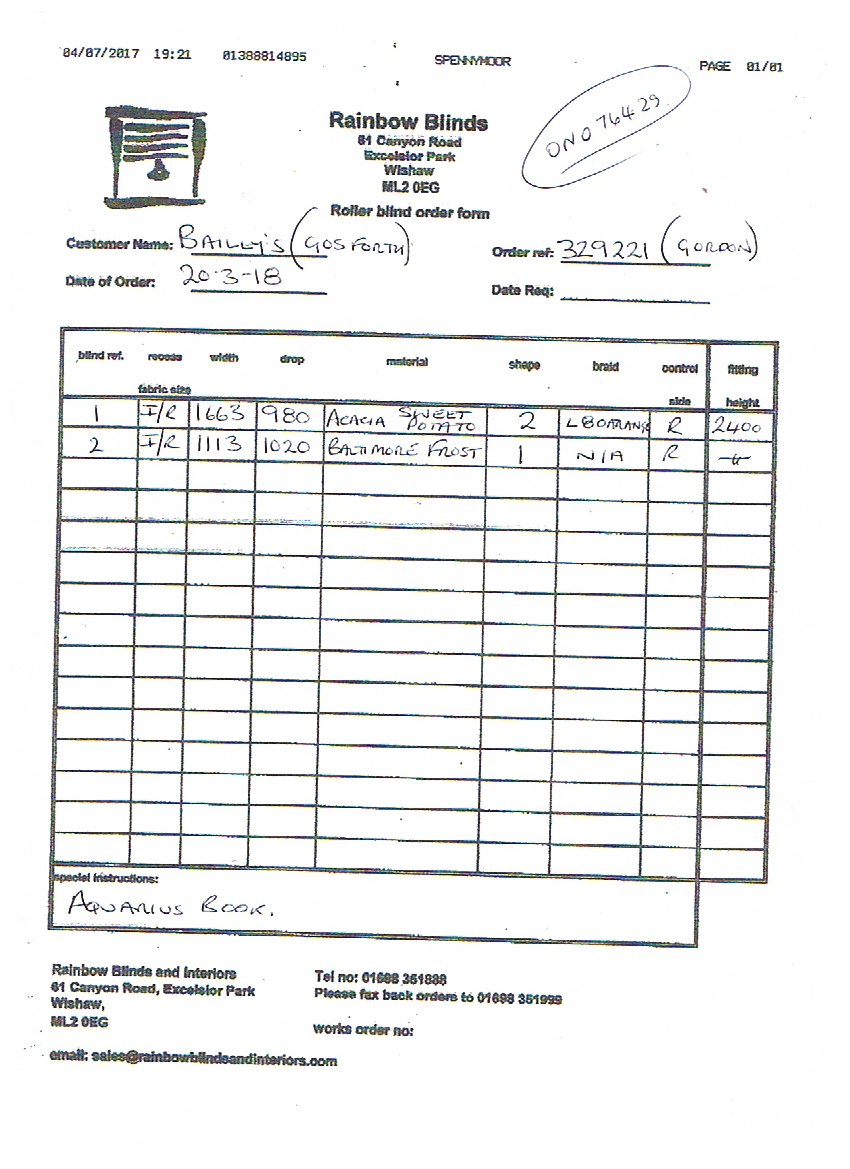 04/07/2017 19:21 01388814895 SPENNYMOOR PAGE 01/01
ONO76429
Rainbow Blinds
61 Canyon Road
Excelsior Park
Wishaw
ML2 0EG
Roller blind order form
Customer Name: BAILLY'S (GOSFORTH) Order ref: 329221 (GORDON)
Date of Order: 20-3-18 Date Req:
blind ref. recess width drop material shape braid control fitting
fabric size side height
1 I/R 1663 980 ACACIA SWEET POTATO 2 R 2400
2 I/R 1113 1020 BALTIMORE FROST 1 N/A R
special instructions:
AQUARIUS BOOK.
Rainbow Blinds and Interiors Tel no: 01698 351888
61 Canyon Road, Excelsior Park Please fax back orders to 01698 351999
Wishaw,
ML2 0EG works order no:
email: sales@rainbowblindsandinteriors.com